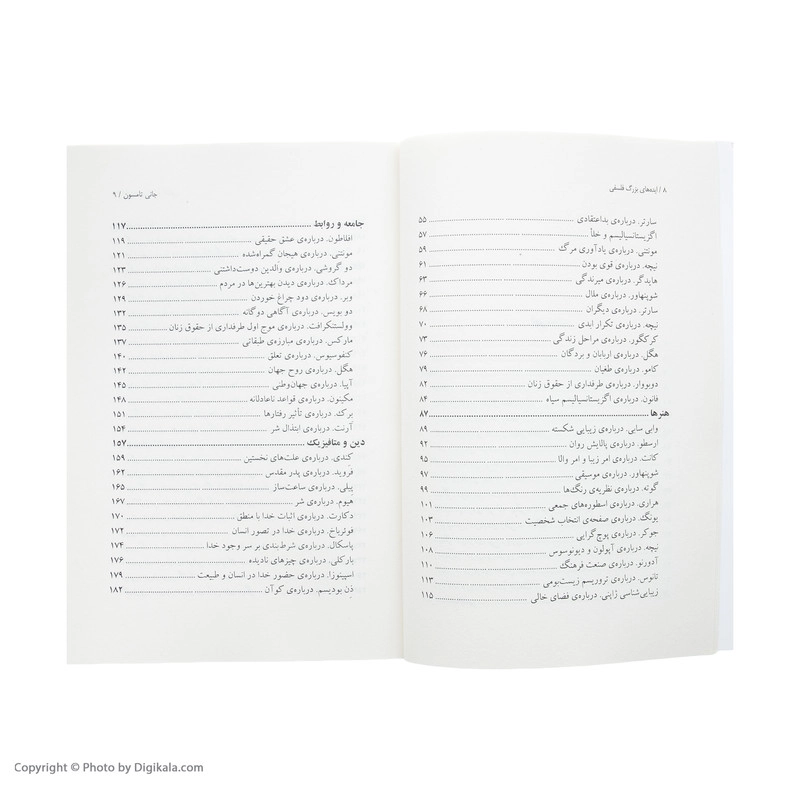 ۸ / ایده‌های بزرگ فلسفی
سارتر. درباره‌ی بداعتقادی ۵۵
اگزیستانسیالیسم و خلأ ۵۷
مونتنی. درباره‌ی یادآوری مرگ ۵۹
نیچه. درباره‌ی قوی بودن ۶۱
هایدگر. درباره‌ی میرندگی ۶۳
شوپنهاور. درباره‌ی ملال ۶۶
سارتر. درباره‌ی دیگران ۶۸
نیچه. درباره‌ی تکرار ابدی ۷۰
کرکگور. درباره‌ی مراحل زندگی ۷۳
هگل. درباره‌ی اربابان و بردگان ۷۶
کامو. درباره‌ی طغیان ۷۹
دوبووار. درباره‌ی طرفداری از حقوق زنان ۸۲
فانون. درباره‌ی اگزیستانسیالیسم سیاه ۸۴
هنرها ۸۷
وابی سابی. درباره‌ی زیبایی شکسته ۸۹
ارسطو. درباره‌ی پالایش روان ۹۲
کانت. درباره‌ی امر زیبا و امر والا ۹۵
شوپنهاور. درباره‌ی موسیقی ۹۷
گوته. درباره‌ی نظریه‌ی رنگ‌ها ۹۹
هراری. درباره‌ی اسطوره‌های جمعی ۱۰۱
یونگ. درباره‌ی صفحه‌ی انتخاب شخصیت ۱۰۳
جوکر. درباره‌ی پوچ‌گرایی ۱۰۶
نیچه. درباره‌ی آپولون و دیونوسوس ۱۰۸
آدورنو. درباره‌ی صنعت فرهنگ ۱۱۰
تانوس. درباره‌ی تروریسم زیست‌بومی ۱۱۳
زیبایی‌شناسی ژاپنی. درباره‌ی فضای خالی ۱۱۵
جانی تامسون / ۹
جامعه و روابط ۱۱۷
افلاطون. درباره‌ی عشق حقیقی ۱۱۹
مونتنی. درباره‌ی هیجان گمراه‌شده ۱۲۱
دو گروشی. درباره‌ی والدین دوست‌داشتنی ۱۲۳
مرداک. درباره‌ی دیدن بهترین‌ها در مردم ۱۲۶
وبر. درباره‌ی دود چراغ خوردن ۱۲۹
دو بویس. درباره‌ی آگاهی دوگانه ۱۳۲
وولستنکرافت. درباره‌ی موج اول طرفداری از حقوق زنان ۱۳۵
مارکس. درباره‌ی مبارزه‌ی طبقاتی ۱۳۷
کنفوسیوس. درباره‌ی تعلق ۱۴۰
هگل. درباره‌ی روح جهان ۱۴۲
آپیا. درباره‌ی جهان‌وطنی ۱۴۵
مکینون. درباره‌ی قواعد ناعادلانه ۱۴۸
برک. درباره‌ی تأثیر رفتارها ۱۵۱
آرنت. درباره‌ی ابتذال شر ۱۵۴
دین و متافیزیک ۱۵۷
کندی. درباره‌ی علت‌های نخستین ۱۵۹
فروید. درباره‌ی پدر مقدس ۱۶۲
پیلی. درباره‌ی ساعت‌ساز ۱۶۵
هیوم. درباره‌ی شر ۱۶۷
دکارت. درباره‌ی اثبات خدا با منطق ۱۷۰
فوئرباخ. درباره‌ی خدا در تصور انسان ۱۷۲
پاسکال. درباره‌ی شرط‌بندی بر سر وجود خدا ۱۷۴
بارکلی. درباره‌ی چیزهای نادیده ۱۷۶
اسپینوزا. درباره‌ی حضور خدا در انسان و طبیعت ۱۷۹
ذن بودیسم. درباره‌ی کوآن ۱۸۲
Copyright © Photo by Digikala.com